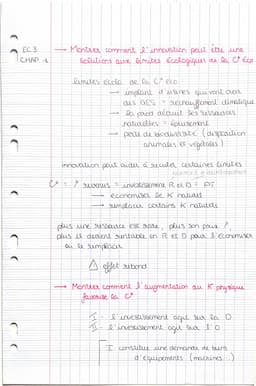 EC3
CHAP 1
→ Montrer comment l'innovation peut être une
solutions aux limites écologiques de la C° éco
limites écolo de la C° éco
→ implant d'usines qui vont avoir
des GES = réchauffement climatique
→ la prod réduit les ressources
naturelles = épuisement
→ perte de biodiversité (disparition
animales et végétales)
innovation peut aider à reculer certaines limites
C° = ↗ revenus = investissement R et D = PT
→ économiser le K naturel
→ remplacer certains K naturels
plus une ressource est rare, plus son prix ↗,
plus il devient rentable en R et D pour l'économiser
ou la remplacer
⚠ effet rebond
→ Montrer comment l'augmentation du K physique
favorise la C°
I - l'investissement agit sur la D
II - l'investissement agit sur l'O
I constitue une demande de biens
d'équipements (machines...)